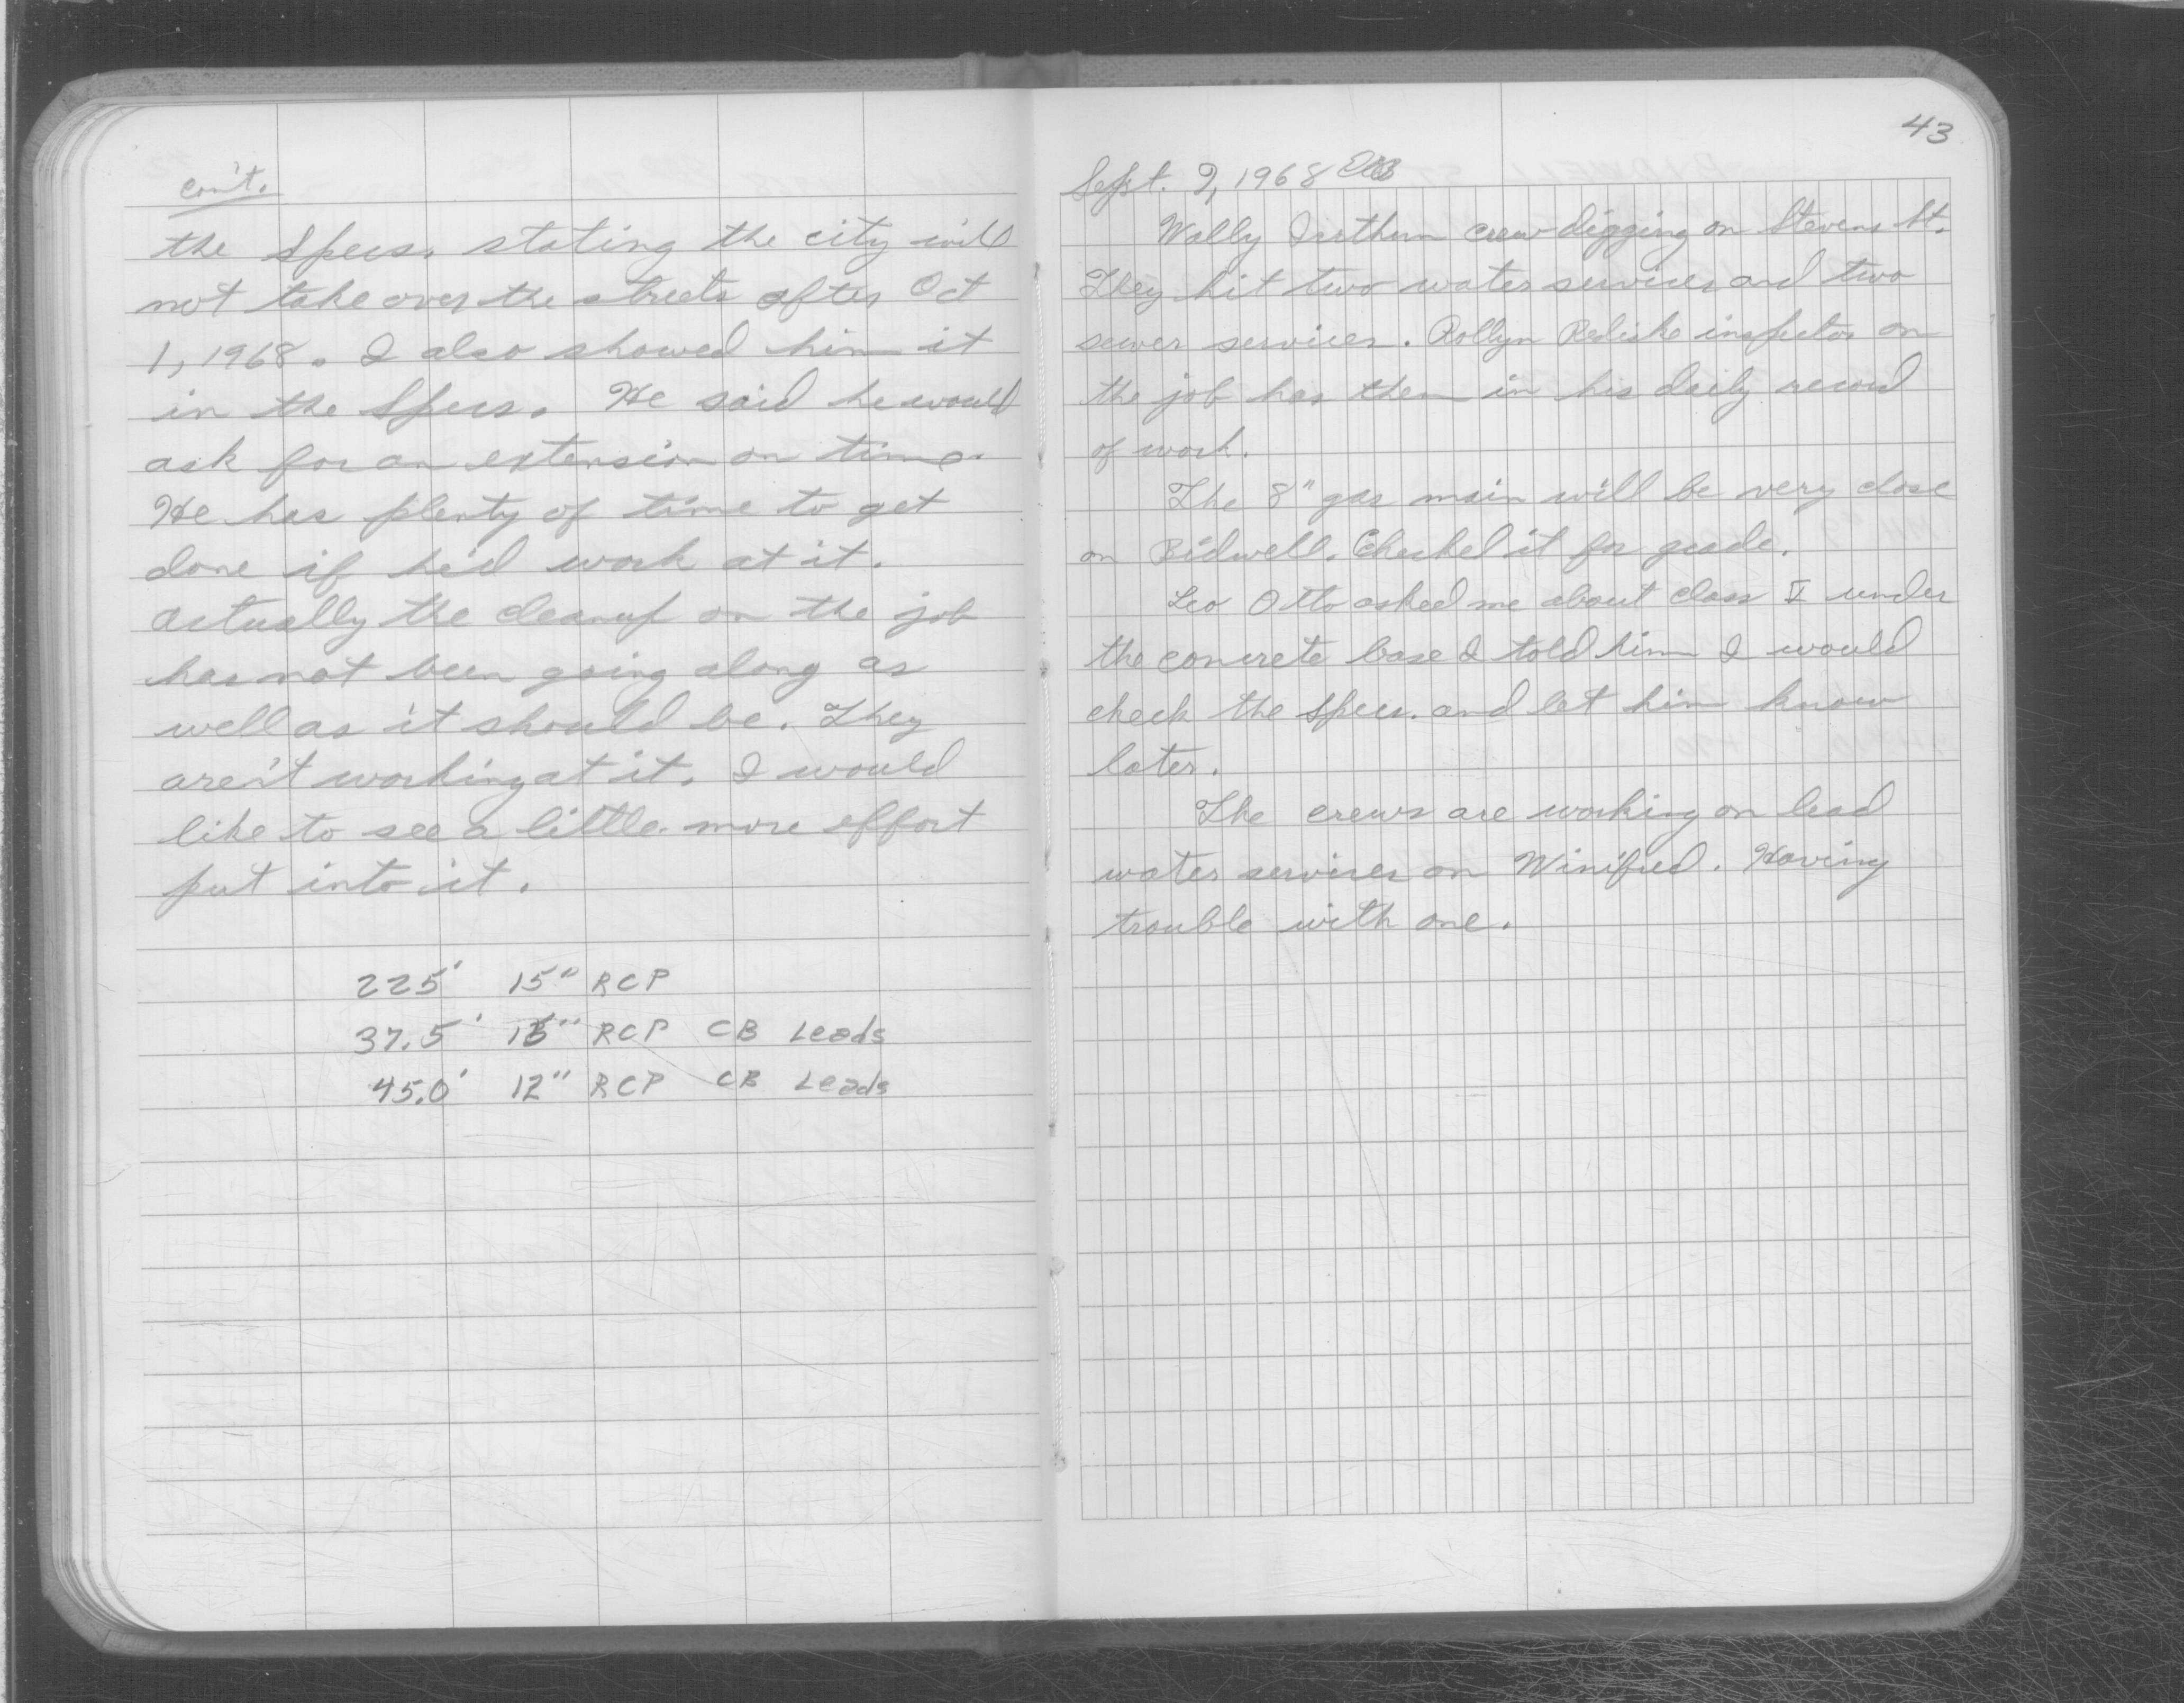 con't.
the Specs. stating the city will
not take over the streets after Oct
1, 1968. I also showed him it
in the Specs. He said he would
ask for an extension on time.
He has plenty of time to get
done if he'd work at it.
Actually the cleanup on the job
has not been going along as
well as it should be. They
aren't working at it. I would
like to see a little more effort
put into it.
225' 15" RCP
37.5' 15" RCP CB Leads
45.0' 12" RCP CB Leads
43
Sept. 9, 1968
Wally crew digging on Stevens St.
They hit two water services and two
sewer services. Rollyn Rediske inspector on
the job has them in his daily record
of work.
The 8" gas main will be very close
on Bidwell. Checked it for grade.
Leo Otto asked me about class V under
the concrete base I told him I would
check the specs. and let him know
later.
The crews are working on lead
water services on Winifred. Having
trouble with one.